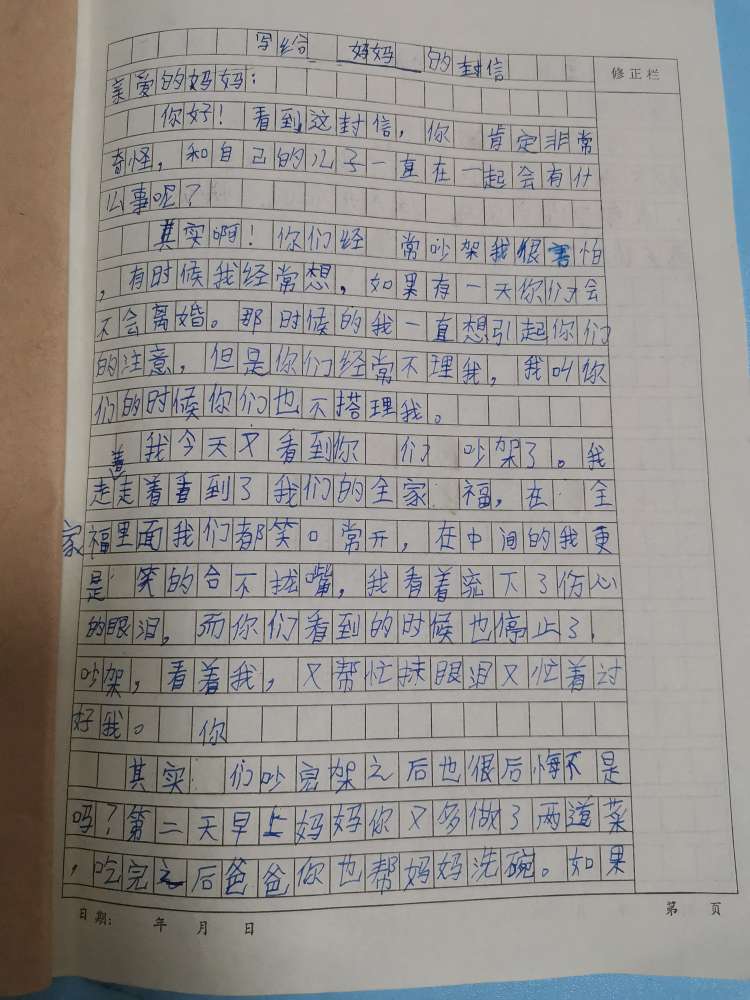 写给 妈妈 的封信
修正栏
亲爱的妈妈：
你好！看到这封信，你 肯定非常
奇怪，和自己的儿子一直在一起会有什
么事呢？
其实啊！你们经 常吵架我很害怕
，有时候我经常想，如果有一天你们会
不会离婚。那时候的我一直想引起你们
的注意，但是你们经常不理我，我叫你
们的时候你们也不搭理我。
我今天又看到你 们 吵架了。我
走走着看到了我们的全家 福，在 全
家福里面我们都笑口常开，在中间的我更
是 笑的合不拢嘴，我看着流下了伤心
的眼泪，而你们看到的时候也停止了
吵架，看着我，又帮忙抹眼泪又忙着过
好我。 你
其实 们吵完架之后也很后悔不是
吗？第二天早上妈妈你又多做了两道菜
，吃完之后爸爸你也帮妈妈洗碗。如果
日期： 年 月 日 第 页